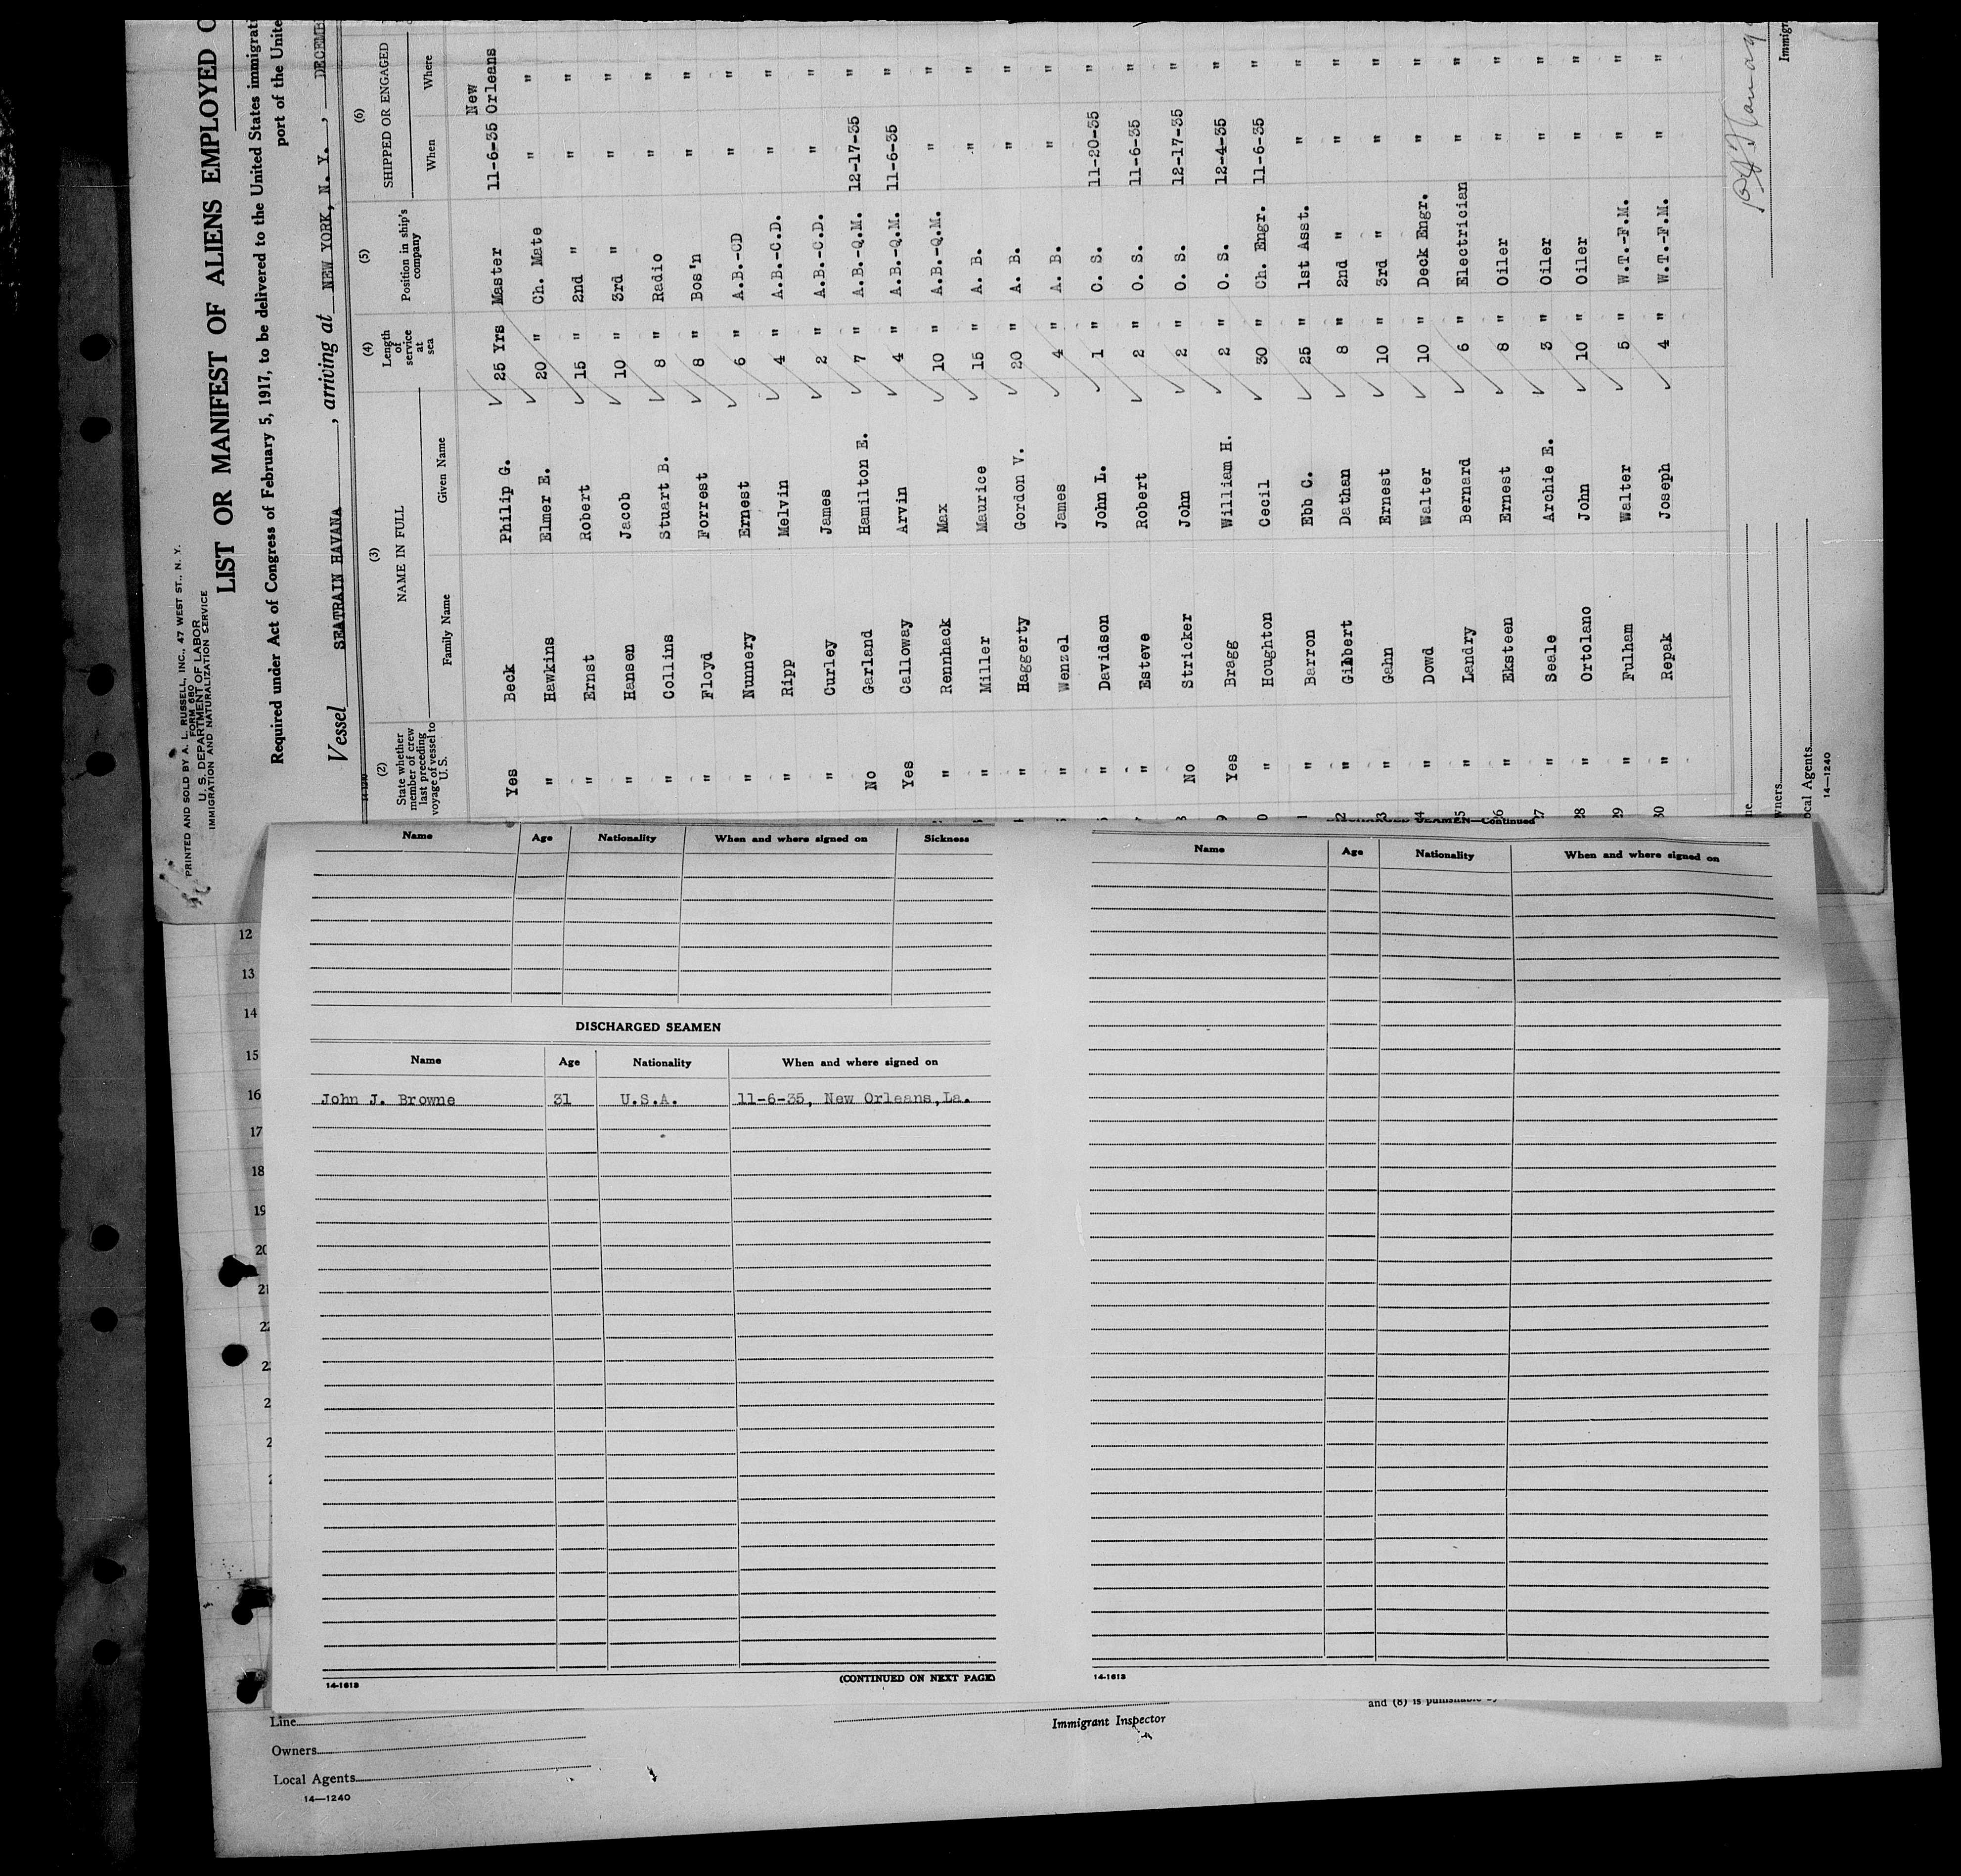 PRINTED AND SOLD BY A. L. RUSSELL, INC., 47 WEST ST., N. Y.
FORM 680
U. S. DEPARTMENT OF LABOR
IMMIGRATION AND NATURALIZATION SERVICE
LIST OR MANIFEST OF ALIENS EMPLOYED
Required under Act of Congress of February 5, 1917, to be delivered to the United States
port of the
Vessel SEATRAIN HAVANA, arriving at NEW YORK, N. Y.,
(2) (3) (4) (5) (6)
State whether member of crew last preceding voyage of vessel to U. S. NAME IN FULL Length of service at sea Position in ship's company SHIPPED OR ENGAGED
Family Name Given Name When Where
Yes Beck Philip G. 25 Yrs Master 11-6-35 New Orleans
" Hawkins Elmer E. 20 " Ch. Mate " "
" Ernst Robert 15 " 2nd " " "
" Hansen Jacob 10 " 3rd " " "
" Collins Stuart B. 8 " Radio " "
" Floyd Forrest 8 " Bos'n " "
" Nunnery Ernest 6 " A.B.-CD " "
" Ripp Melvin 4 " A.B.-C.D. " "
" Curley James 2 " A.B.-C.D. " "
No Garland Hamilton E. 7 " A.B.-Q.M. 12-17-35 "
Yes Calloway Arvin 4 " A.B.-Q.M. 11-6-35 "
" Rennhack Max 10 " A.B.-Q.M. " "
" Miller Maurice 15 " A. B. " "
" Haggerty Gordon V. 20 " A. B. " "
" Wenzel James 4 " A. B. " "
" Davidson John L. 1 " O. S. 11-20-35 "
" Esteve Robert 2 " O. S. 11-6-35 "
No Stricker John 2 " O. S. 12-17-35 "
Yes Bragg William H. 2 " O. S. 12-4-35 "
" Houghton Cecil 30 " Ch. Engr. 11-6-35 "
" Barron Ebb C. 25 " 1st Asst. " "
" Gilbert Dathan 8 " 2nd " " "
" Gahn Ernest 10 " 3rd " " "
" Dowd Walter 10 " Deck Engr. " "
" Landry Bernard 6 " Electrician " "
" Eksteen Ernest 8 " Oiler " "
" Seale Archie E. 3 " Oiler " "
" Ortolano John 10 " Oiler " "
" Fulham Walter 5 " W.T.-F.M. " "
" Repak Joseph 4 " W.T.-F.M. " "
14—1240
Name Age Nationality When and where signed on Sickness
12
13
14
15
16
17
18
19
DISCHARGED SEAMEN
Name Age Nationality When and where signed on
John J. Browne 31 U.S.A. 11-6-35, New Orleans, La.
14-1613
(CONTINUED ON NEXT PAGE)
SEAMEN—Continued
Name Age Nationality When and where signed on
14-1613
Line
Owners
Local Agents
14—1240
Immigrant Inspector
and (8) is punishable by